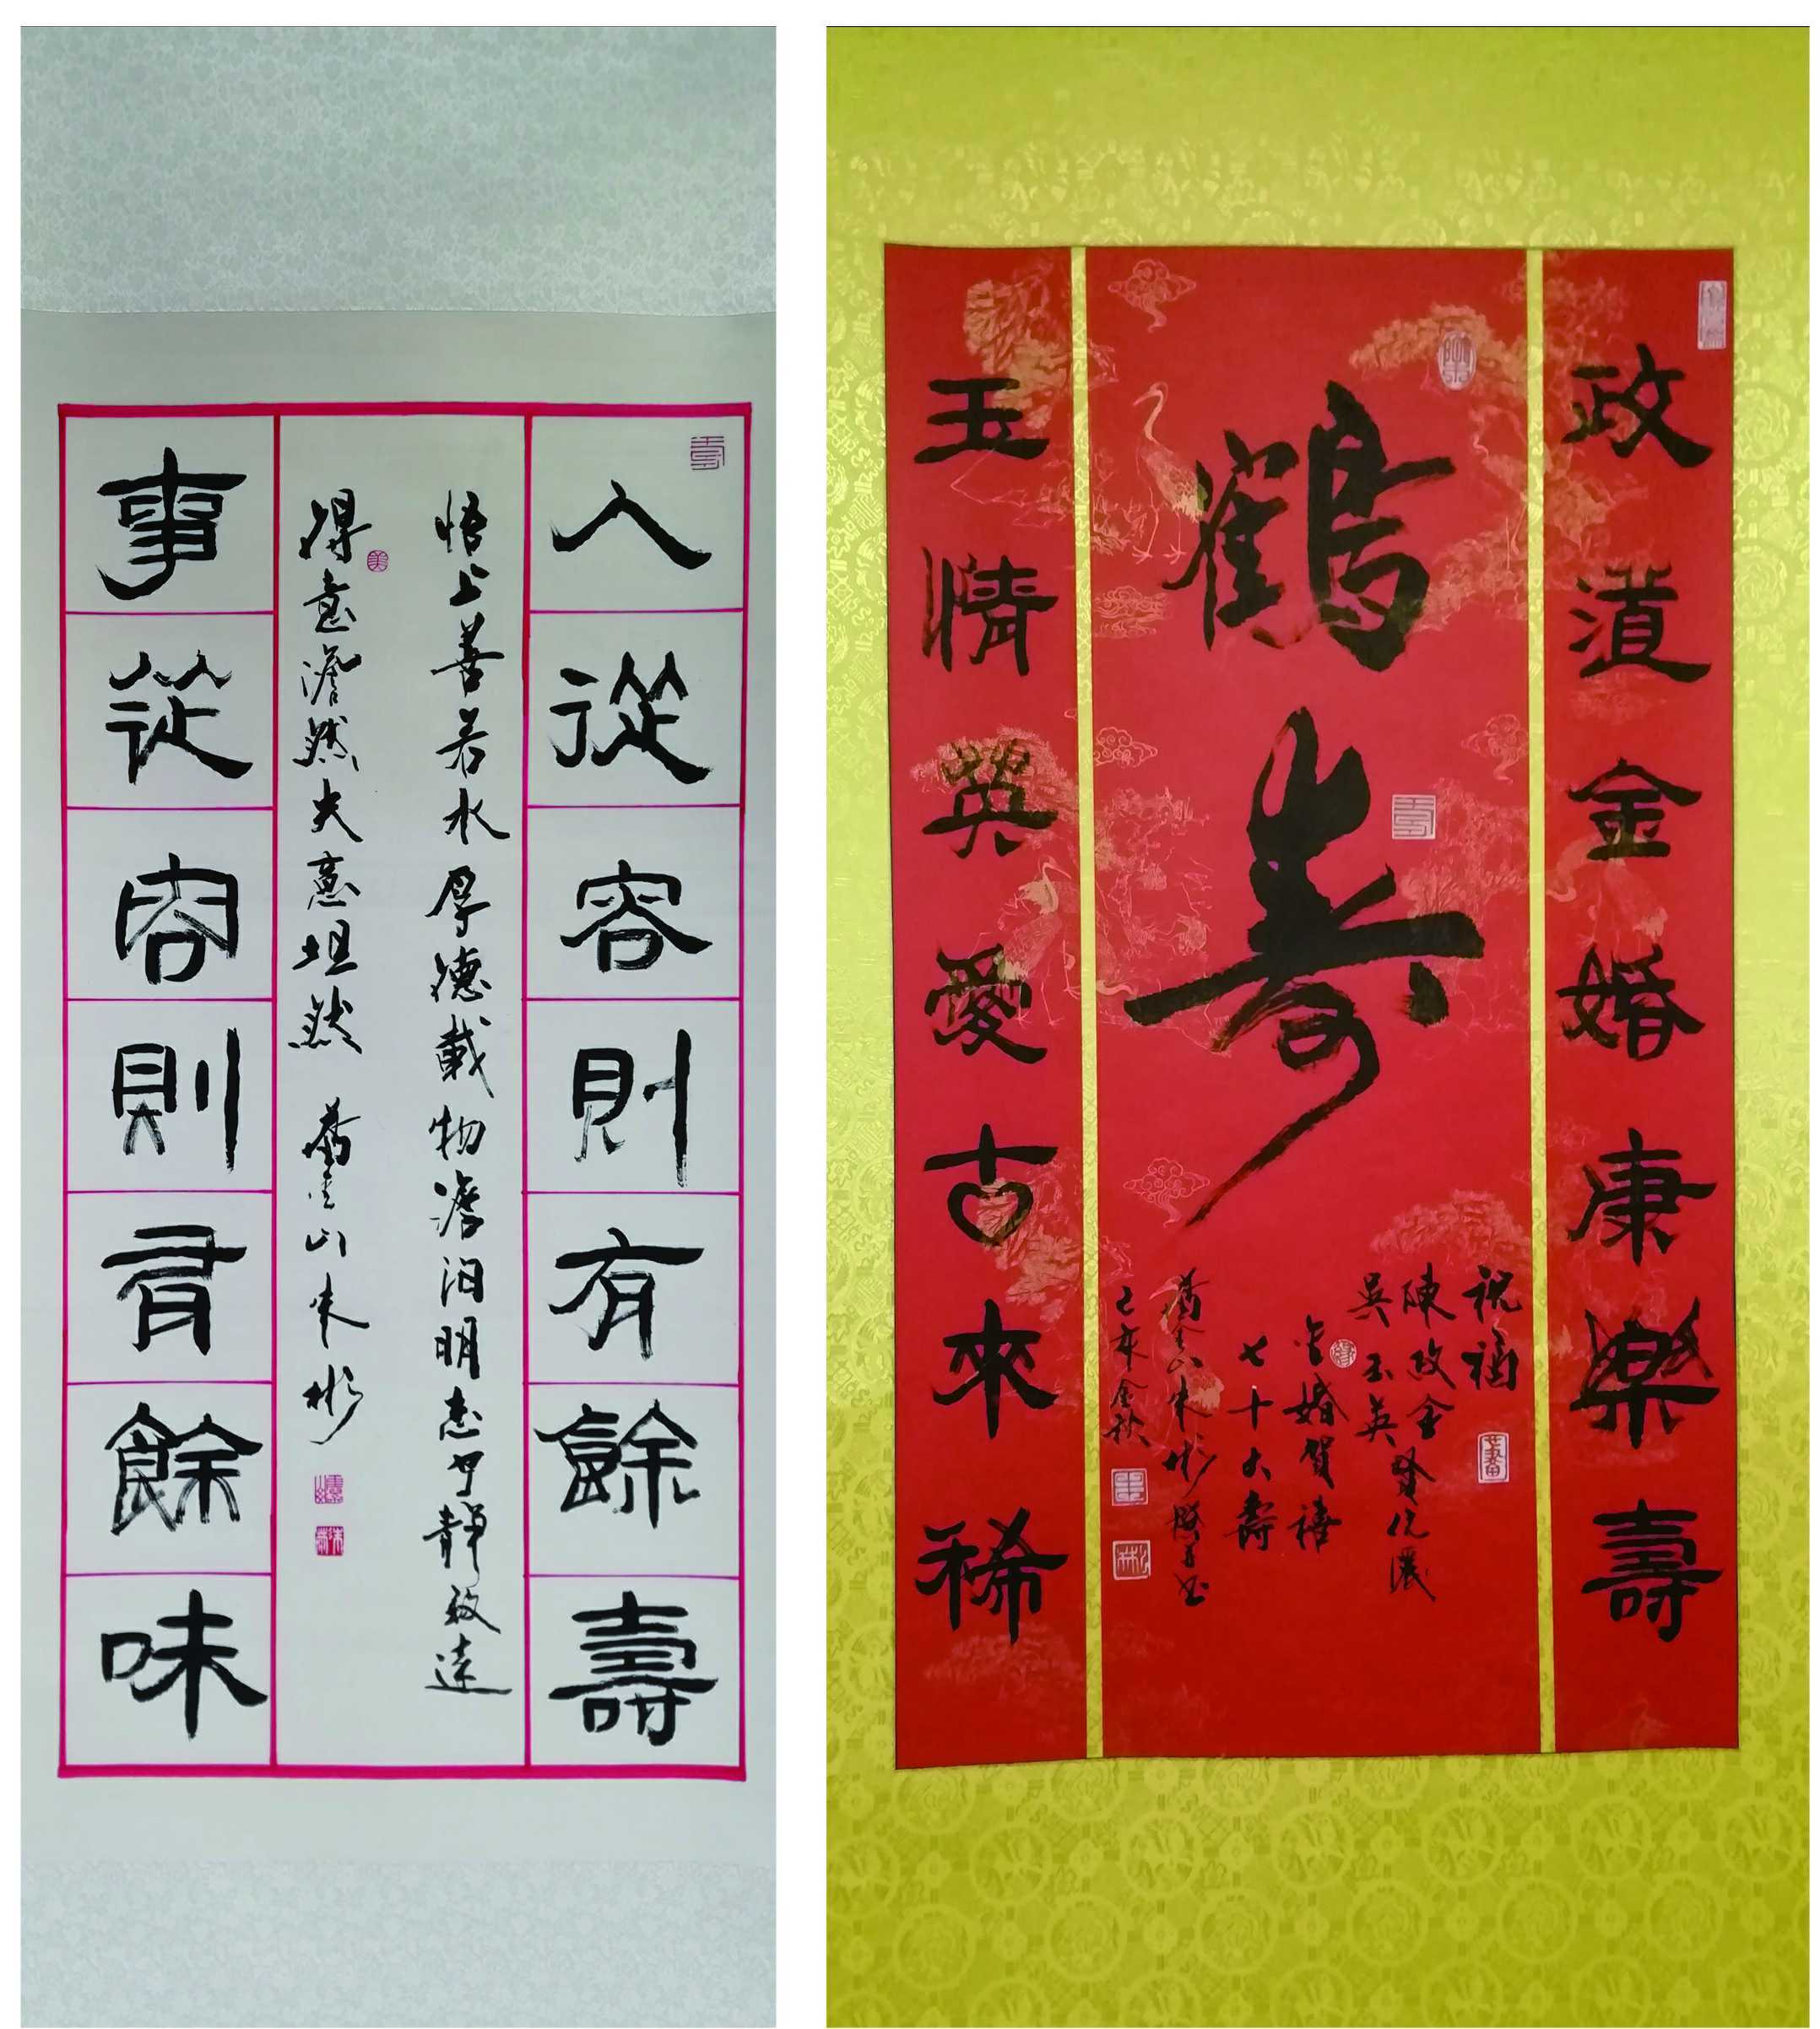 人從容則有餘壽
悟上善若水厚德載物澹泊明志寧靜致遠
得意澹然失意坦然 舊金山朱彬
事從容則有餘味
政道金婚康樂壽
鶴壽
祝福
陳政金賢伉儷
吳玉英
金婚賀禧
七十大壽
舊金山朱彬
己亥金秋
玉情英愛古來稀